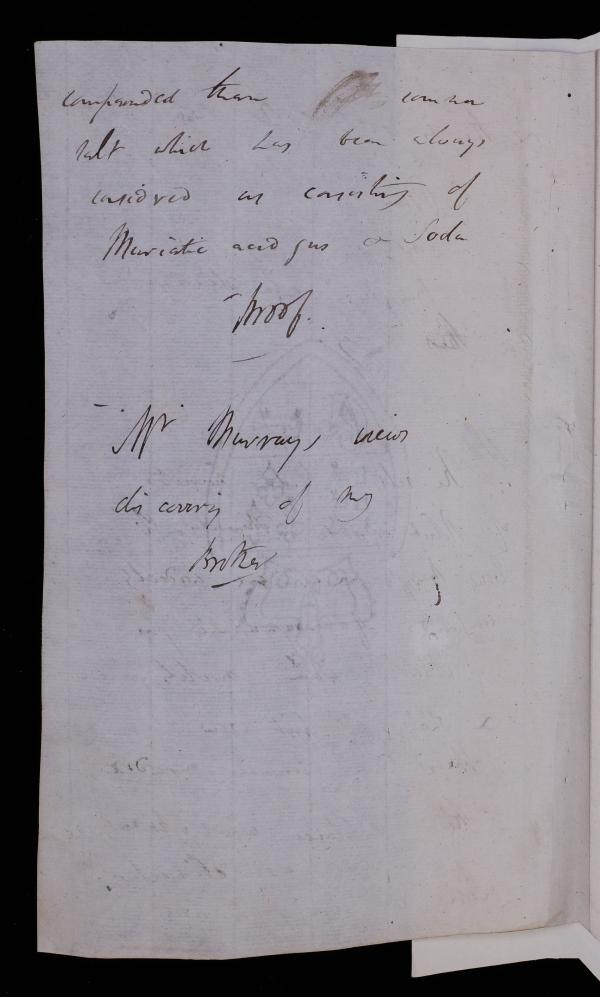 compounded than common
salt which has been always
considered as consisting of
Muriatic acid gas & Soda
Proof.
Mr Murrays views
discovering of my
Brother